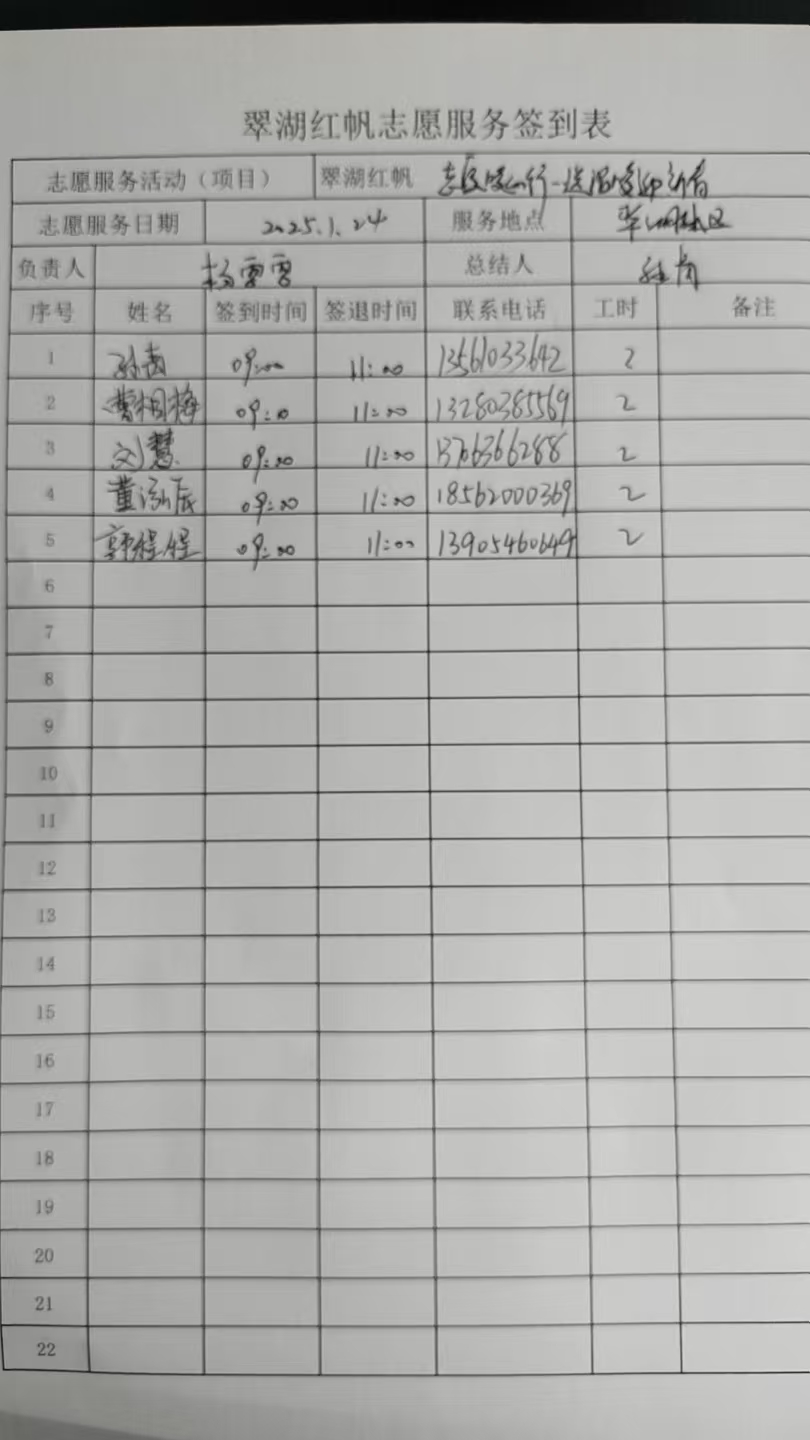 翠湖红帆志愿服务签到表
志愿服务活动（项目） 翠湖红帆 志愿暖心行-送温暖迎新春
志愿服务日期 2025.1.24 服务地点 翠湖社区
负责人 杨雪雪 总结人
序号 姓名 签到时间 签退时间 联系电话 工时 备注
1 09:00 11:00 13561033642 2
2 曹相梅 09:0 11:00 13280385569 2
3 刘慧 09:00 11:00 13706366288 2
4 董泓辰 09:00 11:00 18562000369 2
5 郭程程 09:00 11:00 13905460649 2
6
7
8
9
10
11
12
13
14
15
16
17
18
19
20
21
22